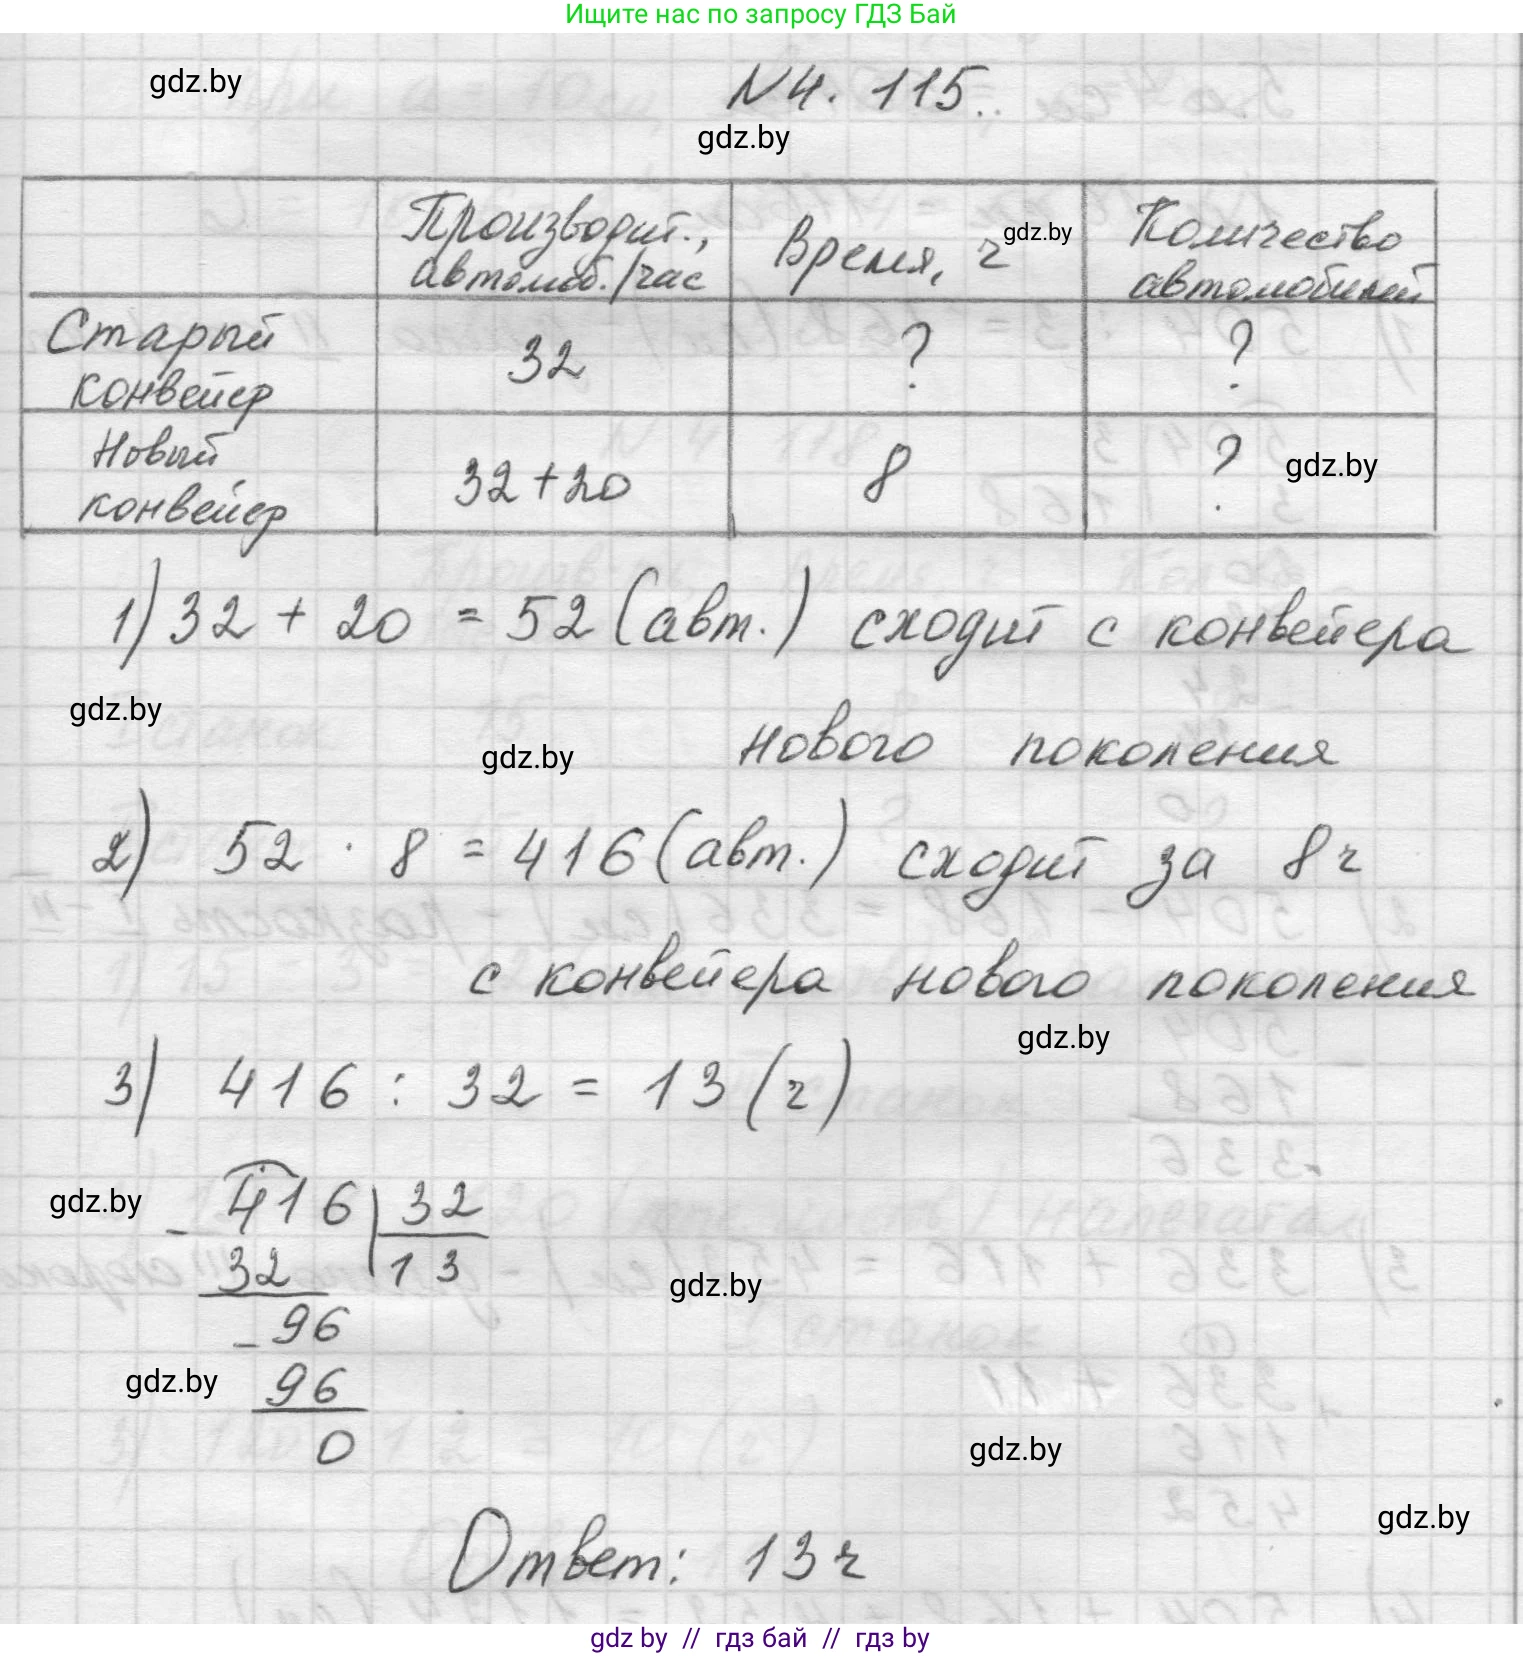 Ищите нас по запросу ГДЗ Бай
gdz.by
N4. 115.
gdz.by
Производит., автомоб./час
Время, ч
gdz.by
Количество автомобилей
Старый конвейер
32
?
?
Новый конвейер
32+20
8
?
gdz.by
1) 32 + 20 = 52 (авт.) сходит с конвейера
gdz.by
нового поколения
gdz.by
2) 52 · 8 = 416 (авт.) сходит за 8 ч
с конвейера нового поколения
gdz.by
3) 416 : 32 = 13 (ч)
gdz.by
- 416 | 32
32 13
gdz.by
- 96
gdz.by
96
0
gdz.by
gdz.by
Ответ: 13 ч
gdz by // гдз бай // гдз by